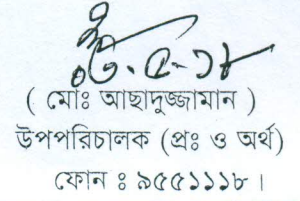 ( মোঃ আছাদুজ্জামান )
উপপরিচালক (প্রঃ ও অর্থ)
ফোন ঃ ৯৫৫১১১৮ ।